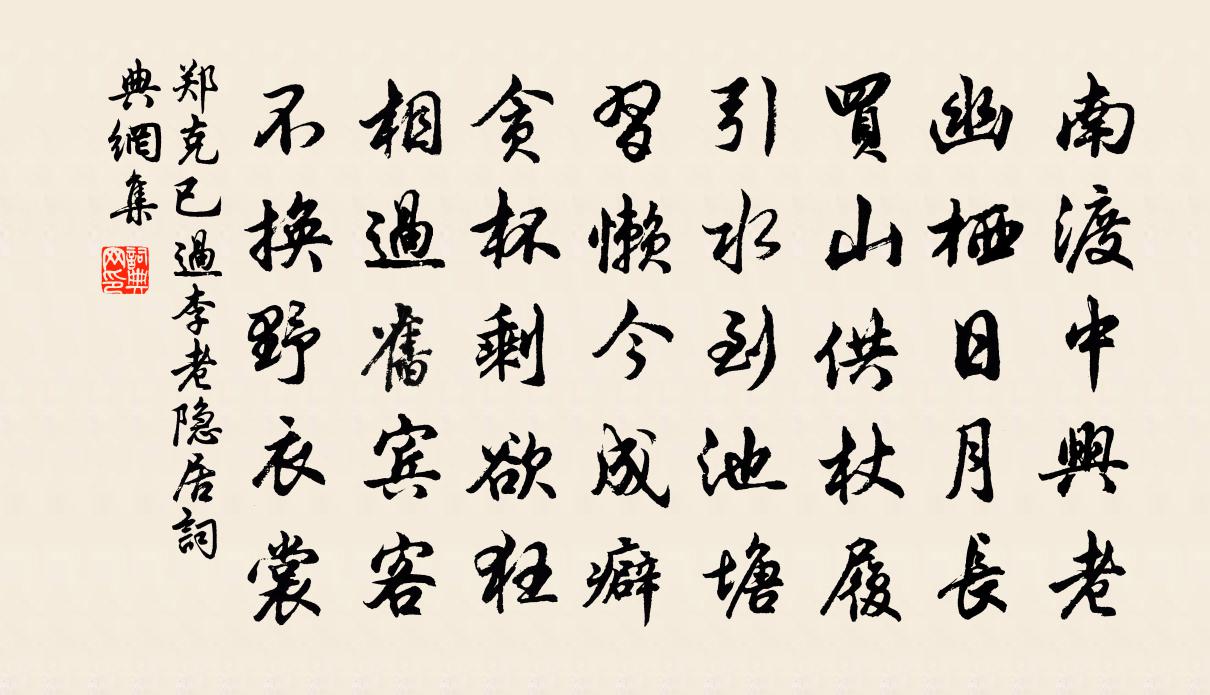 南渡中興老
幽栖日月長
買山供杖履
引水到池塘
習懶今成癖
貪杯剩欲狂
相過舊宾客
不換野衣裳
郑克已過李老隐居詞
典網集
詞典
网印